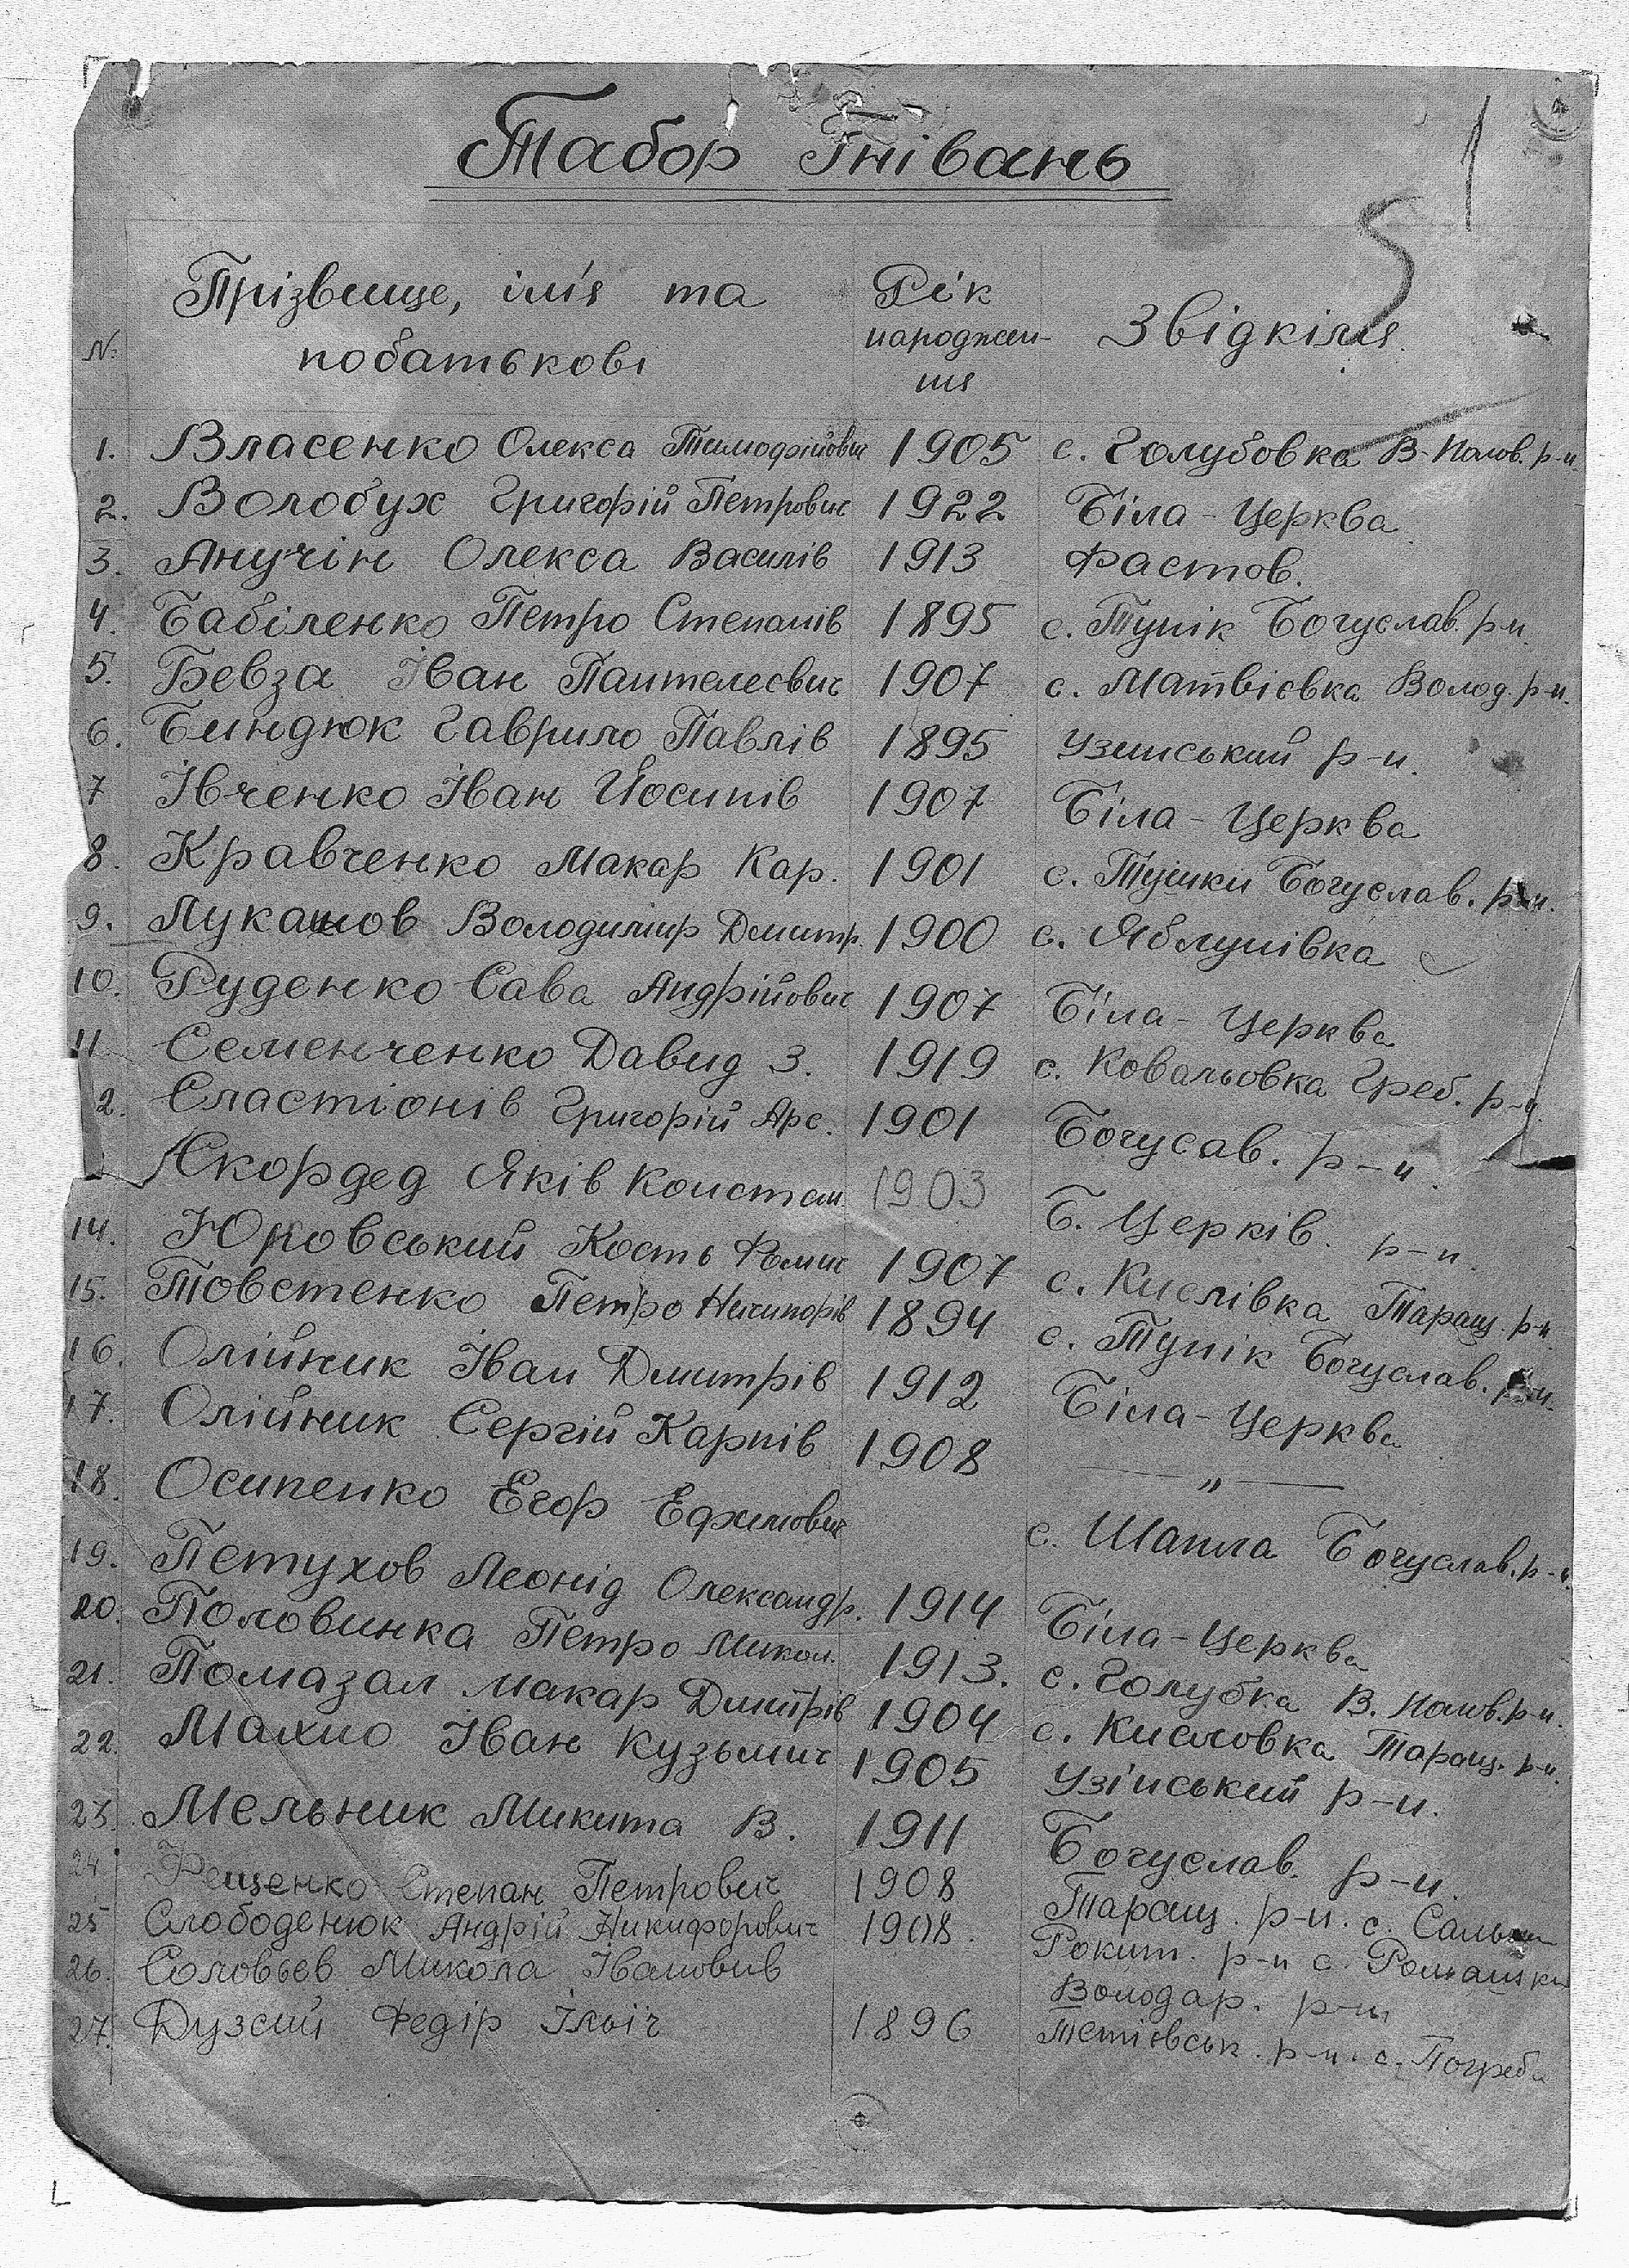 1
Табор Гнівань
5
№ Прізвище, ім'я та побатькові Рік народжен-ня Звідкіля
1. Власенко Олекса Тимофійович 1905 с. Голубовка В-Полов. р-н.
2. Волобух Григорій Петрович 1922 Біла-Церква
3. Анучін Олекса Василів 1913 Фастов.
4. Бабіленко Петро Степанів 1895 с. Тунік Богуслав. р-н.
5. Бевза Іван Пантелеєвич 1907 с. Матвієвка Волод. р-н.
6. Биндюк Гаврило Павлів 1895 Узинський р-н.
7 Івченко Іван Йосипів 1907 Біла-Церква
8. Кравченко Макар Кар. 1901 с. Тушки Богуслав. р-н.
9. Лукашов Володимир Дмитр. 1900 с. Яблунівка
10. Руденко Сава Андрійович 1907 Біла-Церква
11. Семенченко Давид З. 1919 с. Ковальовка Греб. р-н
2. Сластіонів Григорій Арс. 1901 Богусав. р-н.
Скордед Яків Констан. 1903 Б. Церків. р-н.
14. Юровський Кость Фомич 1907 с. Кислівка Таращ. р-н.
15. Товстенко Петро Ничипорів 1894 с. Тунік Богуслав. р-н.
16. Олійник Іван Дмитрів 1912 Біла-Церква
17. Олійник Сергій Карпів 1908 — „ —
18. Осипенко Егор Ефимович с. Шапла Богуслав. р-н.
19. Петухов Леонід Олександр. 1914 Біла-Церква
20. Половинка Петро Микол. 1913. с. Голубка В. Полов. р-н.
21. Помазал Макар Дмитрів 1904 с. Кисловка Таращ. р-н.
22. Махно Іван Кузьмич 1905 Узінський р-н.
23. Мельник Микита В. 1911 Богуслав. р-н.
24. Фещенко Степан Петрович 1908 Таращ. р-н. с.
25 Слободенюк Андрій Никифорович 1908. Рокит. р-н с. Ромашки
26. Соловьев Микола Івановив Володар. р-н
27. Дузсий Федір Ілыіч 1896 Тетієвськ. р-н. с. Погреби